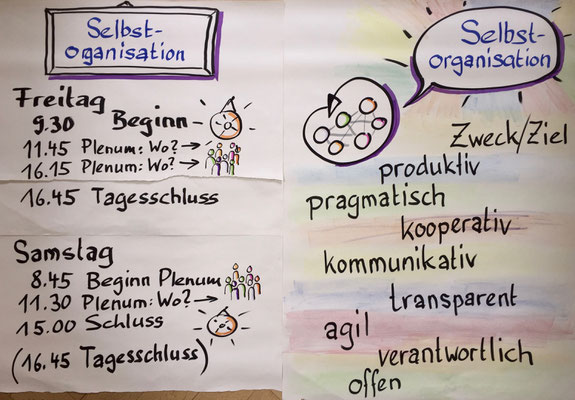 Selbst-
organisation
Freitag
9.30 Beginn
11.45 Plenum: Wo? →
16.15 Plenum: Wo? →
16.45 Tagesschluss
Samstag
8.45 Beginn Plenum
11.30 Plenum: Wo? →
15.00 Schluss
(16.45 Tagesschluss)
Selbst-
organisation
Zweck/Ziel
produktiv
pragmatisch
kooperativ
kommunikativ
transparent
agil
verantwortlich
offen